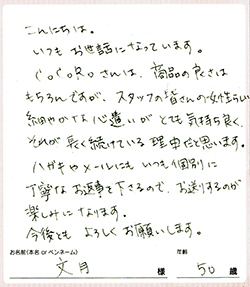 こんにちは。
いつもお世話になっています。
くらしさんは、商品の良さは
もちろんですが、スタッフの皆さんの女性らしい
細やかな心遣いがとても気持ち良く、
それが長く続けている理由だと思います。
ハガキやメールにもいつも個別に
丁寧なお返事を下さるので、お送りするのが
楽しみになります。
今後ともよろしくお願いします。
お名前(本名 or ペンネーム)
年齢
文月 様 50 歳